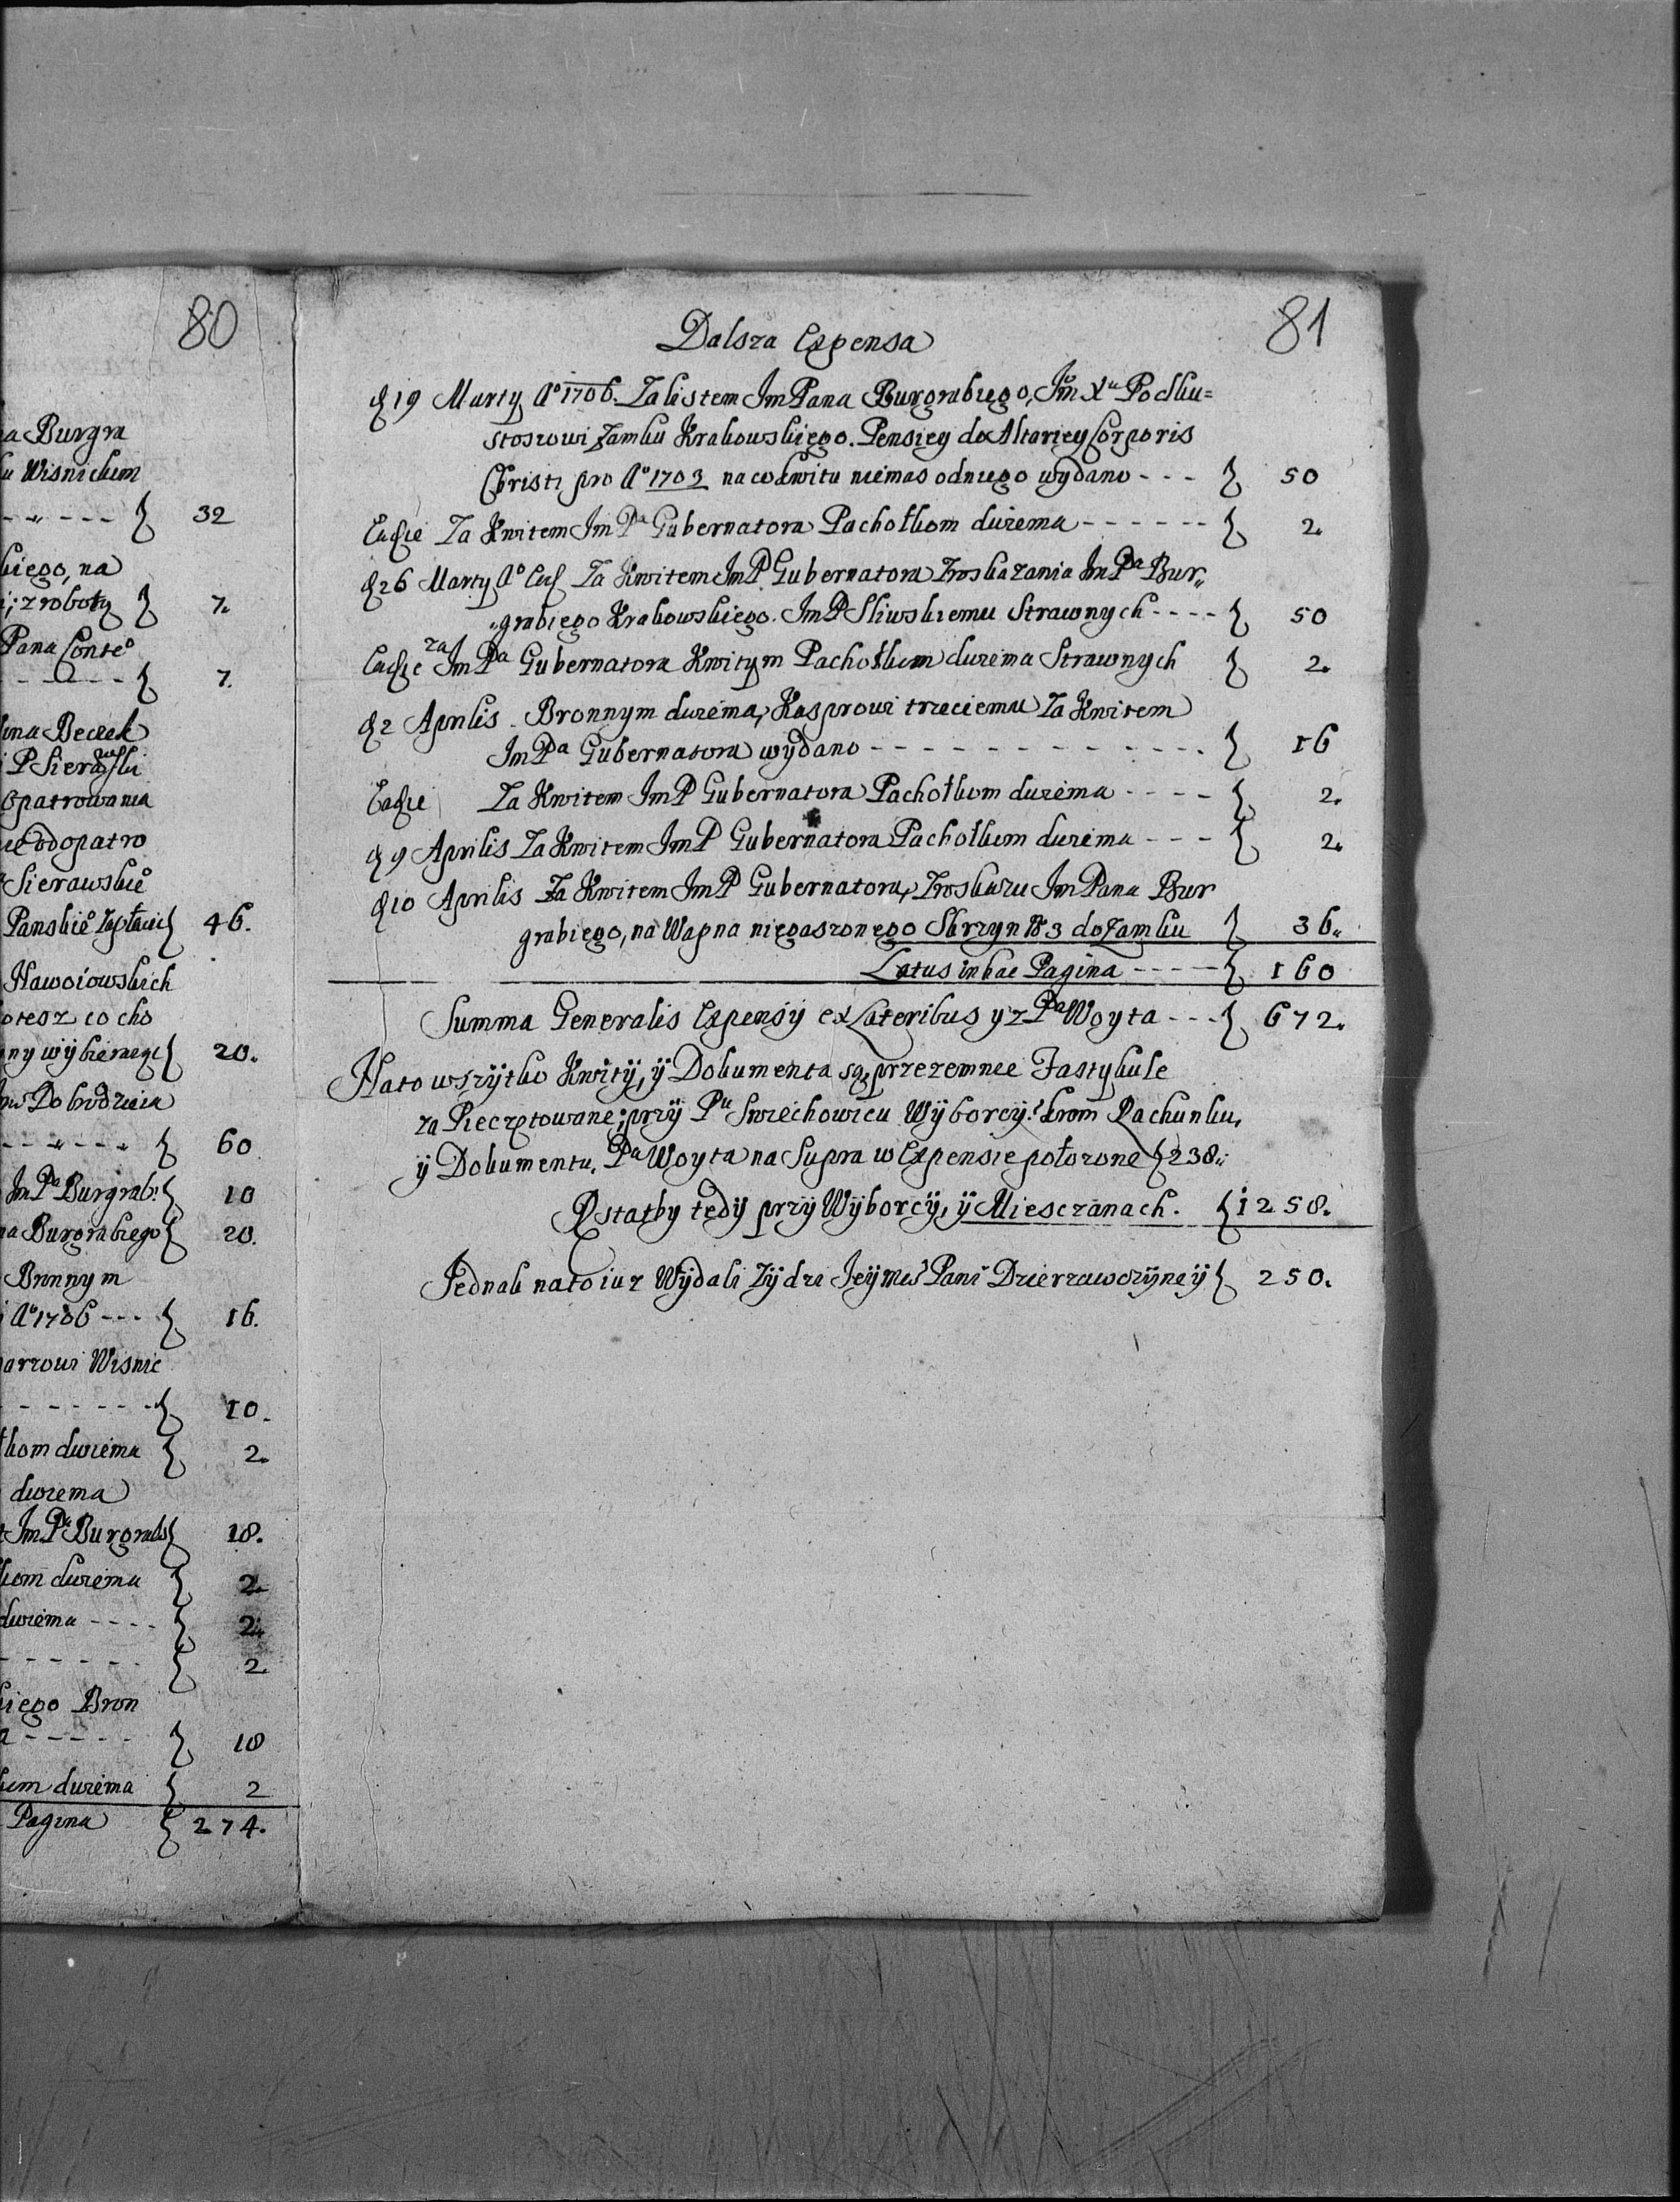 80
a Burgra
u Wisnickim
32
kiego, na
i; z roboty 7.
Pana Conte
7.
ina Beczek
P Sierawski
Opatrowania
Sierawskie
Panskie Zapłacić 46.
Nawoiowskich
20.
Dobrodzieia
60
Im Pa Burgrab: 10
na Burgrabiego 20.
Bronnym
Ao 1706 --- 16.
arzowi Wisnic
10.
kom dwiema 2.
dwiema
Im Pa Burgrab 18.
kom dwiema 2.
dwiema ---- 2.
2.
kiego Bron
a ----- 18
kom dwiema 2
Pagina 274.
81
Dalsza Expensa
d 19 Marty Ao 1706. Za listem Im Pana Burgrabiego, Im Xu Podku=
stoszowi Zamku Krakowskiego. Pensiey do Altariey Corporis
Christi pro Ao 1703 na co kwitu niemas od niego wydano --- 50
Eadie Za Kwitem Im Pa Gubernatora Pachołkom dwiema ------ 2.
d 26 Marty Ao Eod Za Kwitem Im P Gubernatora Zroskazania Im Pa Bur„
„grabiego Krakowskiego. Im P Sliwskiemu Strawnych ---- 50
Eadie za Im Pa Gubernatora Kwitym Pachołkom dwiema Strawnych 2.
d 2 Aprilis. Bronnym dwiema, Kasprowi trzeciemu Za Kwitem
Im Pa Gubernatora wydano ------------ 16
Eadie Za Kwitem Im P Gubernatora Pachołkom dwiema ---- 2.
d 9 Aprilis Za Kwitem Im P Gubernatora Pachołkom dwiema --- 2.
d 10 Aprilis Za Kwitem Im P Gubernatora, Zroskazu Im Pana Bur
grabiego, na Wapna niegaszonego Skrzyn N 3 do Zamku 36.
Latus in hac Pagina ----- 160
Summa Generalis Expensÿ ex Lateribus y z Pa Woyta --- 672.
Na to wszÿtko Kwitÿ, ÿ Dokumenta są, przezemnie Fastykule
za Pieczętowane; przÿ Pu Swiechowicu Wÿborcÿ. krom Rachunku,
ÿ Dokumentu, Pa Woyta na Supra w Expensie położone 238.
Restatby tedÿ przÿ Wÿborcÿ, ÿ Miesczanach. 1258.
Jednak na to iuz Wÿdali Zÿdzi Jeÿmci Pani Dzierzawczÿneÿ 250.